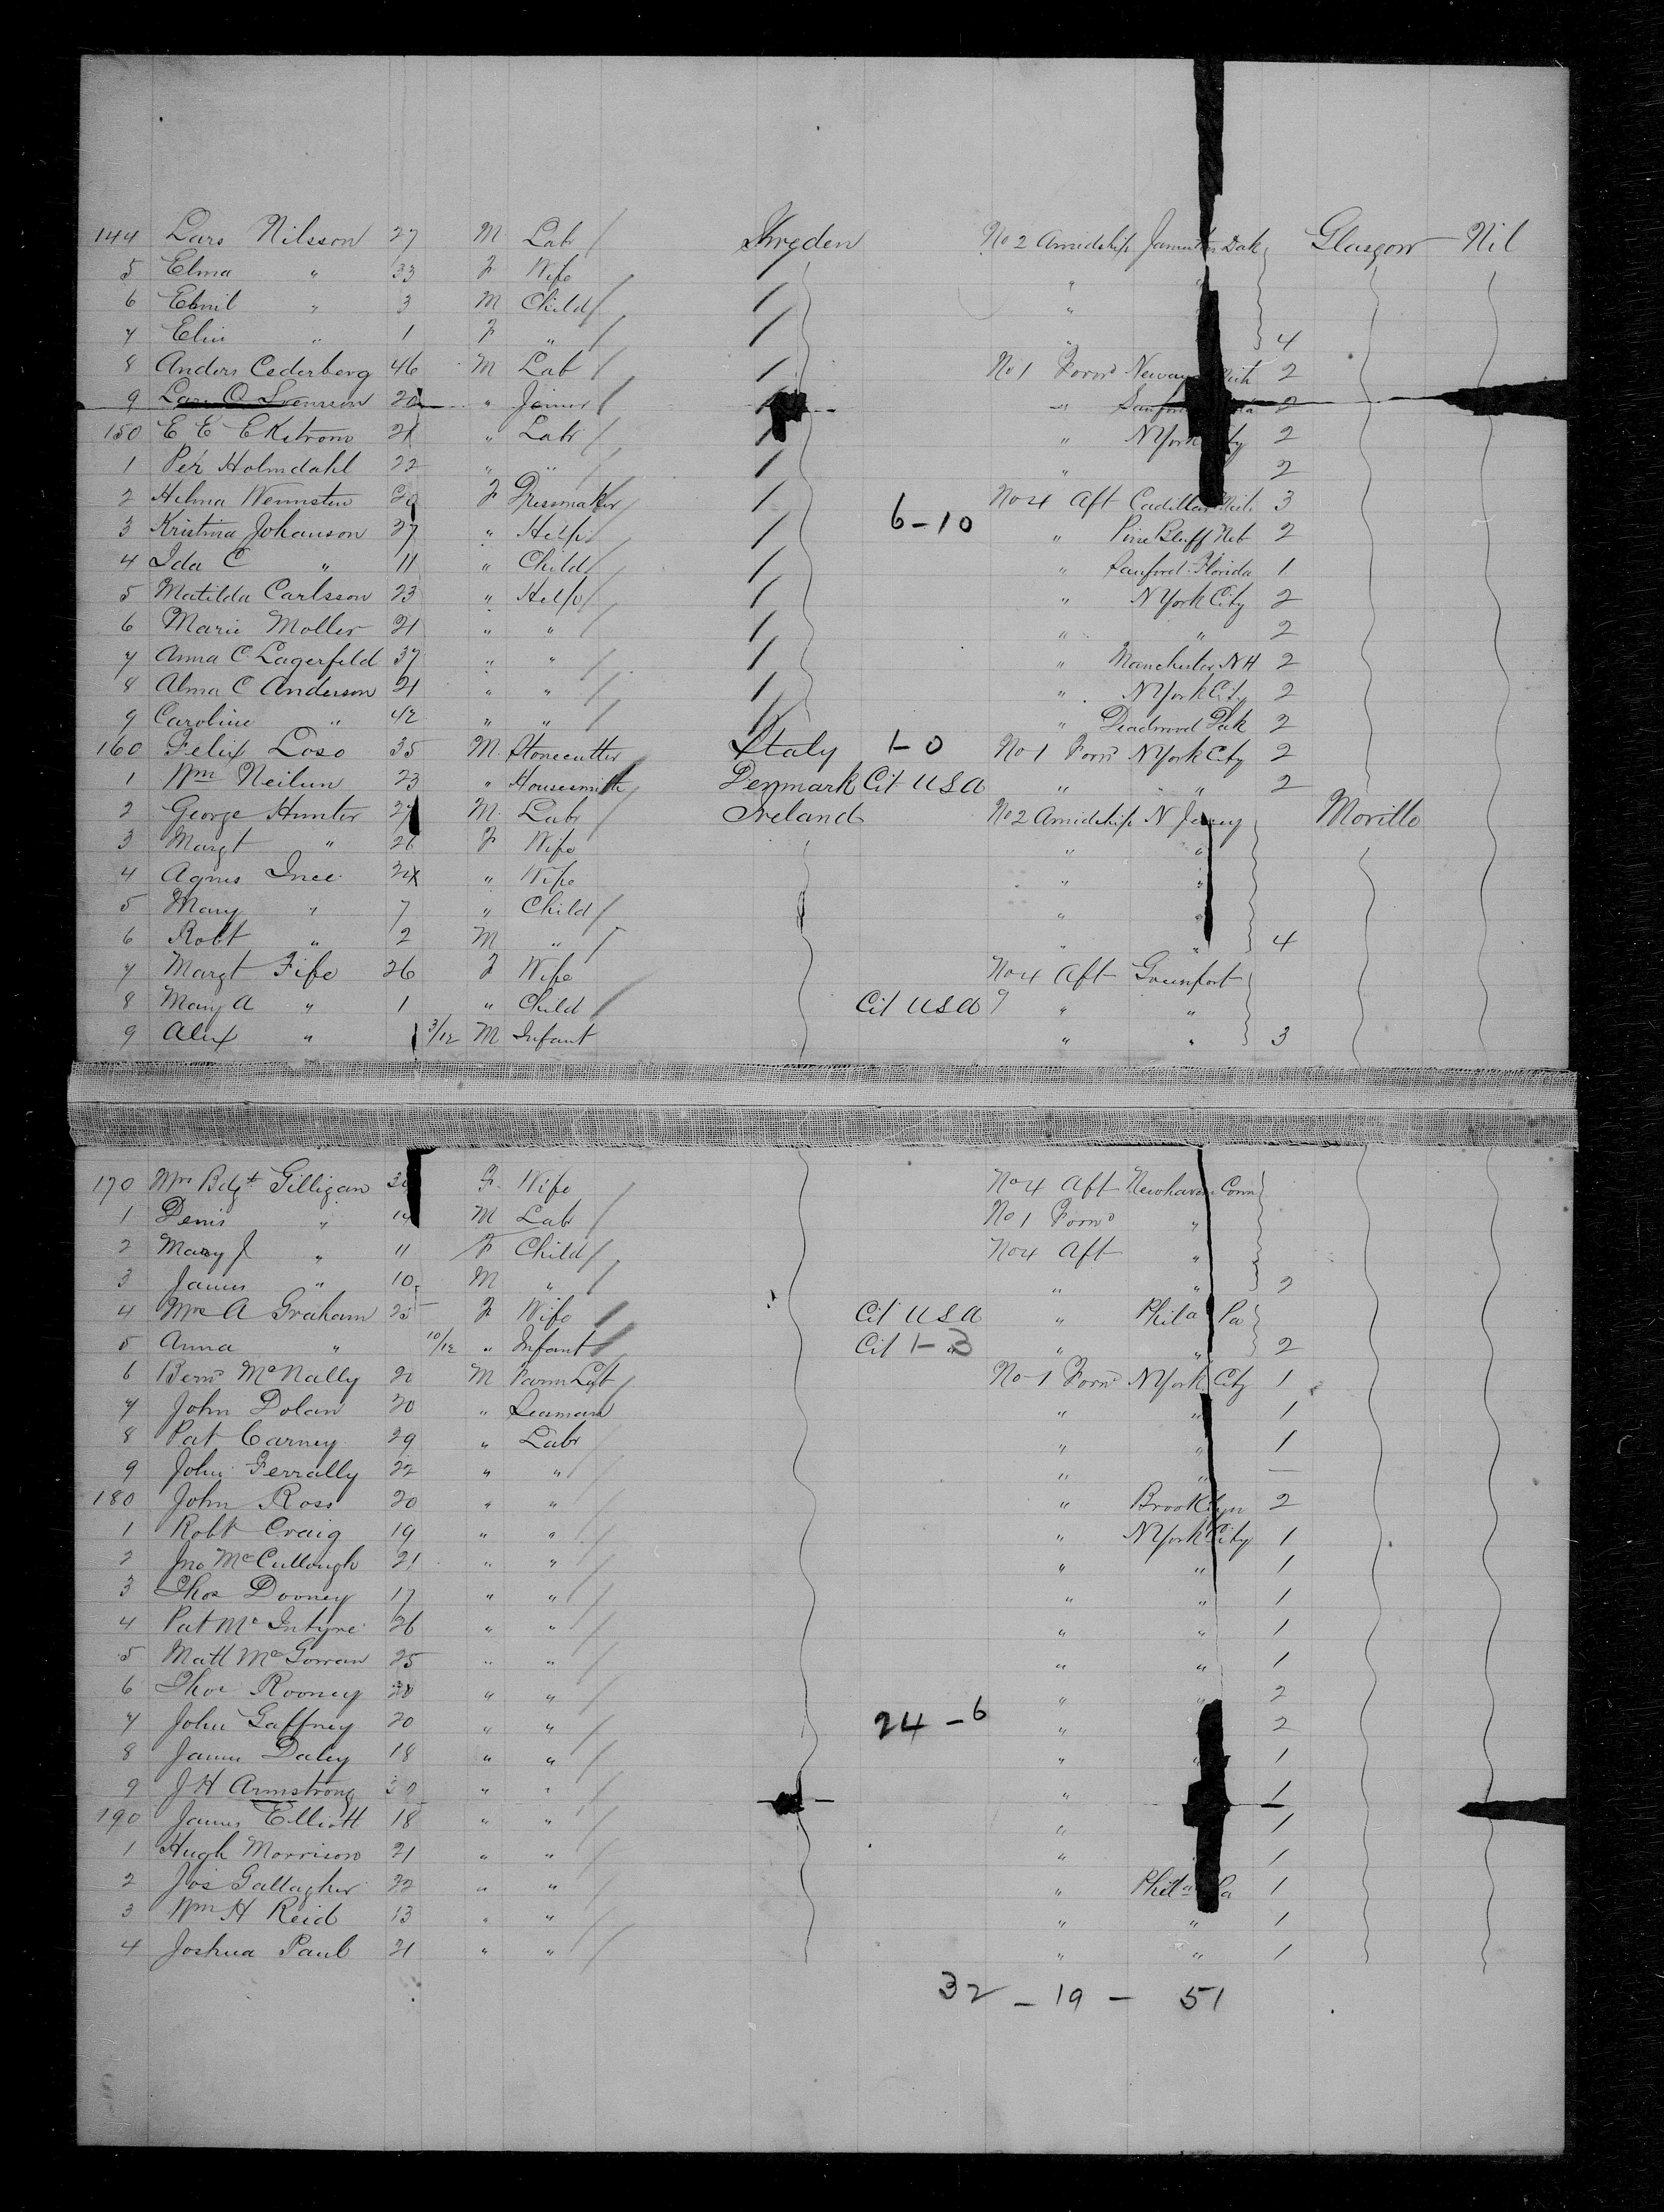 144 Lars Nilsson 27 M Labr Sweden No 2 Amidship Dak Glasgow Nil
5 Elma " 33 F Wife " "
6 Emil " 3 M Child " "
7 Elin " 1 F " " 4
8 Anders Cederberg 46 M Lab No 1 Forwd 2
9 Lars O Svenson 20 " Joiner " 2
150 E E Ekstrom 21 " Labr " N York City 2
1 Per Holmdahl 22 " " " 2
2 Hilma F Dressmaker No 4 Aft Cadillac Mich 3
3 Kristina Johanson 27 " Help 6-10 " Pine Bluff Neb 2
4 Ida C " 11 " Child " Sanford Florida 1
5 Matilda Carlsson 23 " Help " N York City 2
6 Marie Moller 21 " " " " 2
7 Anna C Lagerfeld 37 " " " Manchester NH 2
8 Alma C Anderson 21 " " " N York City 2
9 Caroline " 42 " " " Deadwood Dak 2
160 Felix Loso 35 M Stonecutter Italy 1-0 No 1 Forwd N York City 2
1 Wm Neilun 23 " Housesmith Denmark Cit USA " " 2
2 George Hunter 27 M Labr Ireland No 2 Amidship N Jersey Moville
3 Margt " 26 F Wife " "
4 Agnes Ince " Wife " "
5 Mary " 7 " Child " "
6 Robt " 2 M " " " 4
7 Margt Fife 26 F Wife No 4 Aft Greenport
8 Mary A " 1 " Child Cit USA " "
9 Alex " 3/12 M Infant " " 3
170 Mrs Bdgt Gilligan F Wife No 4 Aft Newhaven Conn
1 Denis " 14 M Labr No 1 Forwd "
2 Mary J " 11 F Child No 4 Aft "
3 James " 10 M " " " 2
4 Mrs A Graham 25 F Wife Cit USA " Phila Pa
5 Anna " 10/12 " Infant Cit 1-3 " " 2
6 Bernd McNally 20 M Farm Lab No 1 Forwd N York City 1
7 John Dolan 20 " Seaman " " 1
8 Pat Carney 29 " Labr " " 1
9 John Ferrally 22 " " " " —
180 John Ross 20 " " " Brooklyn 2
1 Robt Craig 19 " " " N York City 1
2 Jno McCullough 21 " " " " 1
3 Thos Dooney 17 " " " " 1
4 Pat McIntyre 26 " " " " 1
5 Matt McGowan 25 " " " " 1
6 Thos Rooney " " " " 2
7 John Gaffney 20 " " 24-6 " " 2
8 James Daley 18 " " " " 1
9 J H Armstrong " " " 1
190 James Elliott 18 " " " 1
1 Hugh Morrison 21 " " " 1
2 Jos Gallagher 22 " " " Phila Pa 1
3 Wm H Reid 13 " " " " 1
4 Joshua Paul 21 " " " " 1
32 - 19 - 51